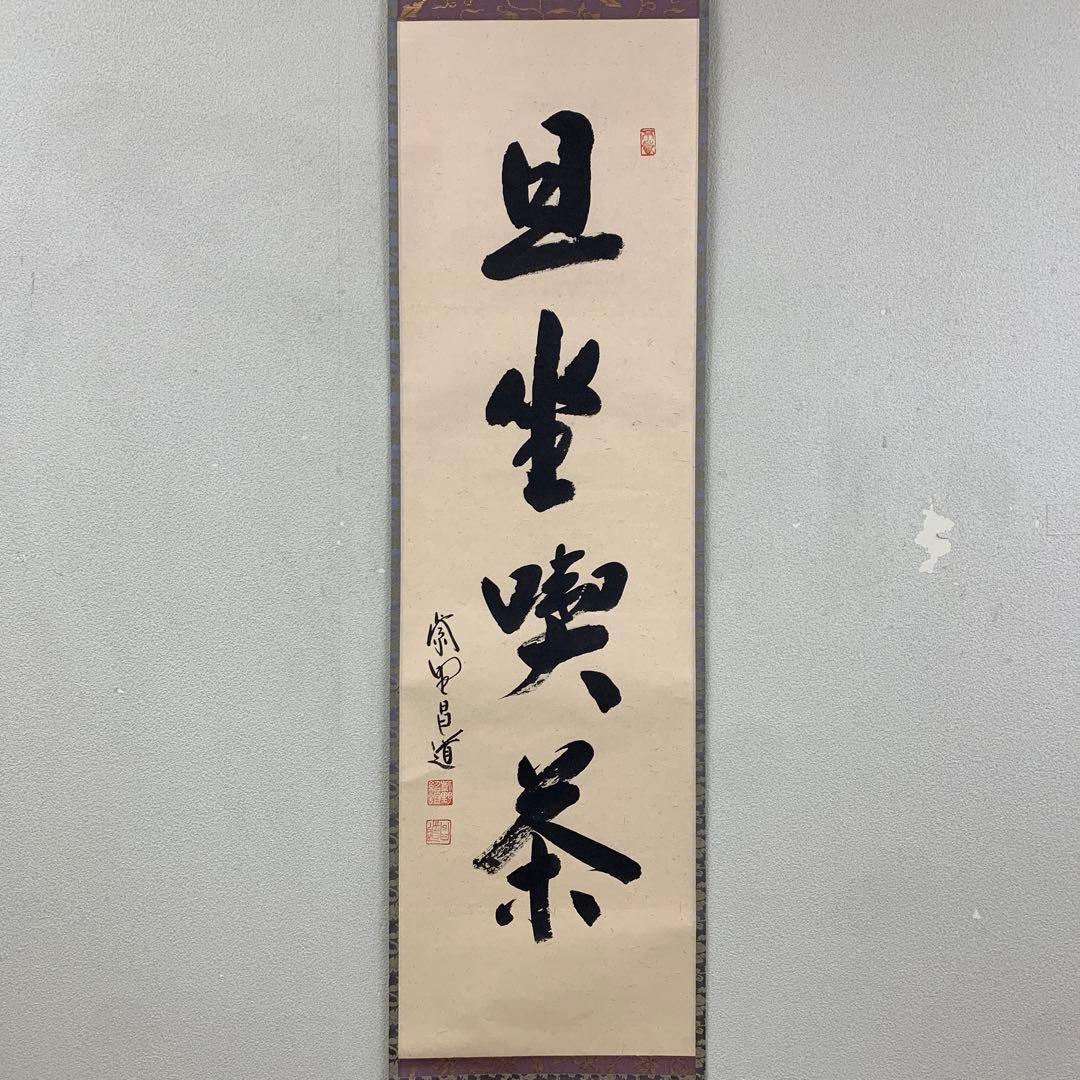 且坐喫茶
紫野昌道